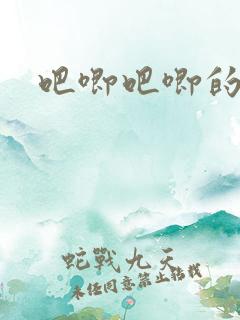 吧唧吧唧的
蛇戰九天
未经同意禁止转载